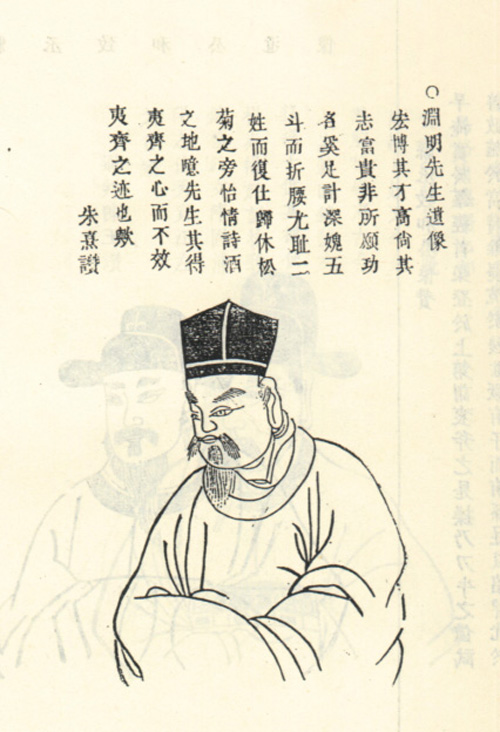 ○淵明先生遺像
宏博其才高尙其
志富貴非所願功
名奚足計深媿五
斗而折腰尤耻二
姓而復仕歸休松
菊之旁怡情詩酒
之地噫先生其得
夷齊之心而不效
夷齊之迹也歟
朱熹讚